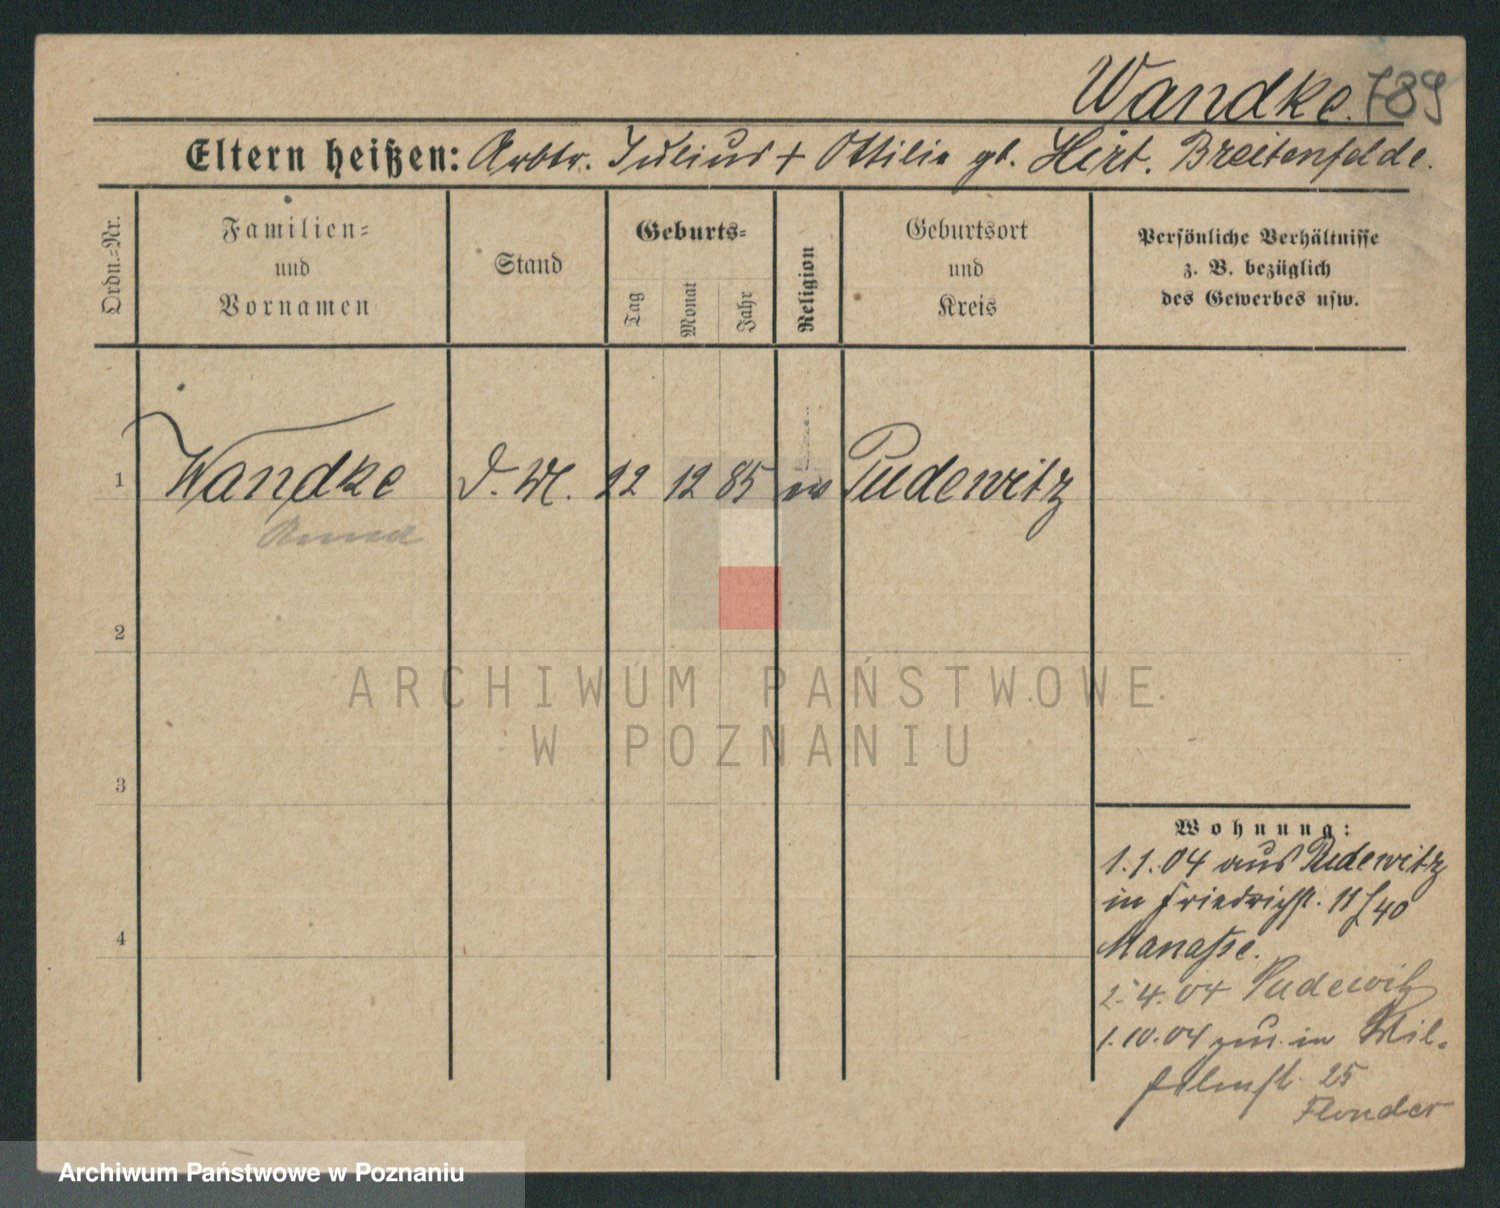 Wandke. 789
Eltern heißen: Arbtr. Julius + Ottilie gb. Hirt. Breitenfelde.
Ordn.-Nr.
Familien-
und
Vornamen
Stand
Geburts-
Tag
Monat
Jahr
Religion
Geburtsort
und
Kreis
Persönliche Verhältnisse
z. B. bezüglich
des Gewerbes usw.
1 Wandke D. M. 22 12 85 ev Pudewitz
Anna
2
3
4
Wohnung:
1.1.04 aus Pudewitz
in Friedrichst. 11/40
Manasse.
2.4.04 Pudewitz
1.10.04 zur. in Wil-
helmst. 25
ARCHIWUM PAŃSTWOWE
W POZNANIU
Archiwum Państwowe w Poznaniu